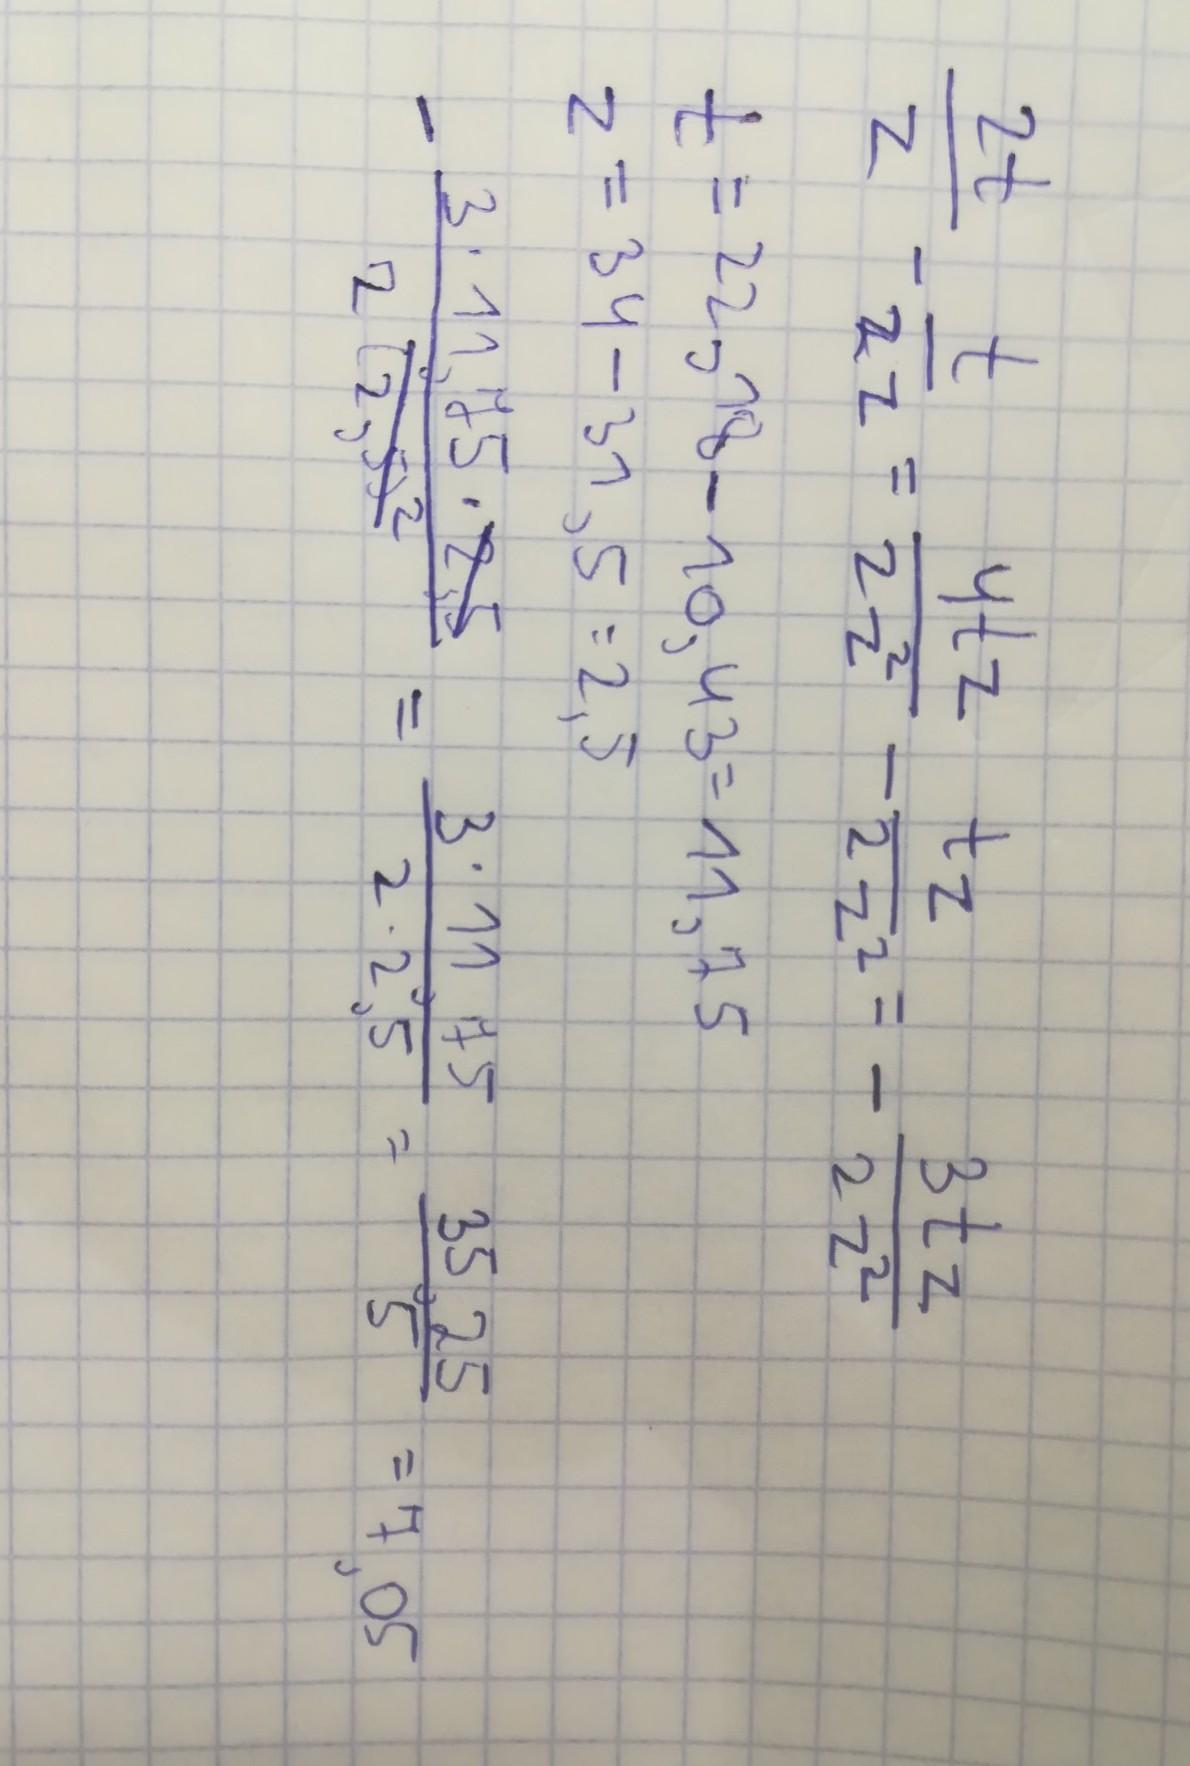 2t/z - t/2z = 4tz/2z² - tz/2z² = - 3tz/2z²
t = 22,18 - 10,43 = 11,75
z = 34 - 31,5 = 2,5
- 3·11,75·2,5/2(2,5)² = 3·11,75/2·2,5 = 35,25/5 = 7,05